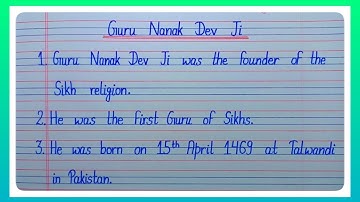 Guru Nanak Dev Ji
1. Guru Nanak Dev Ji was the founder of the
Sikh religion.
2. He was the first Guru of Sikhs.
3. He was born on 15th April 1469 at Talwandi
in Pakistan.